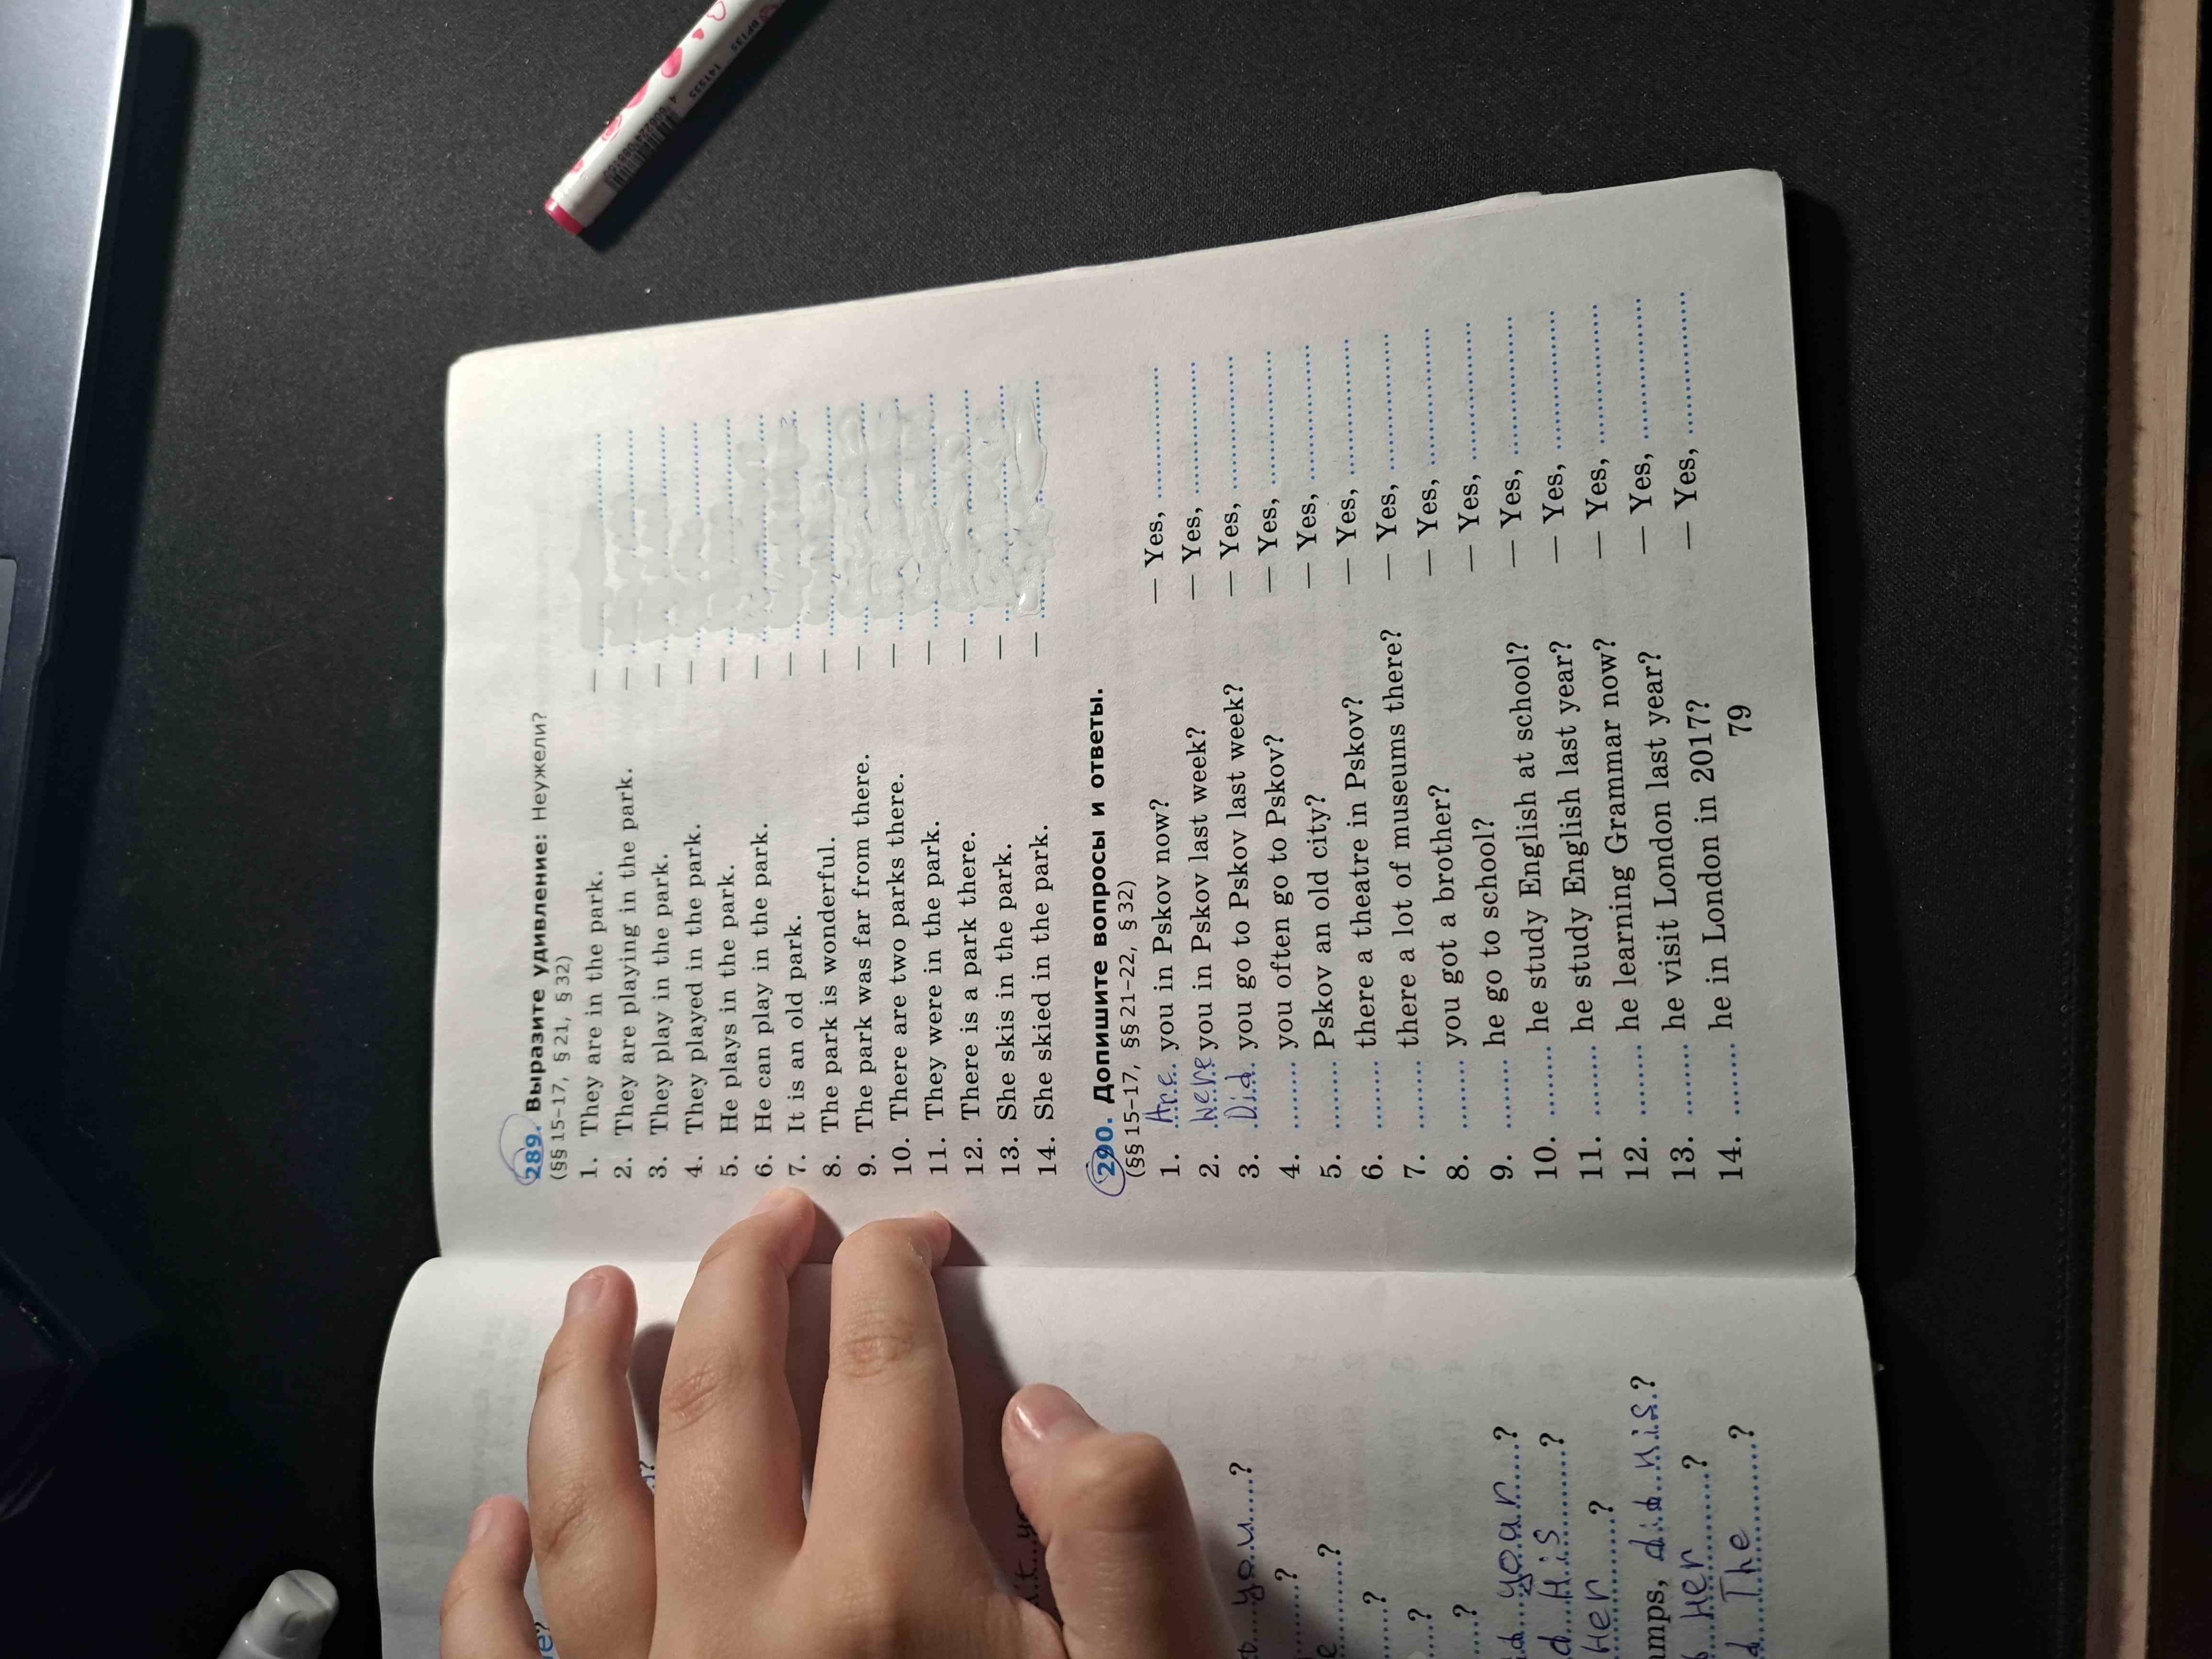 289. Выразите удивление: Неужели?
(§§ 15–17, § 21, § 32)
1. They are in the park. –
2. They are playing in the park. –
3. They play in the park. –
4. They played in the park. –
5. He plays in the park. –
6. He can play in the park. –
7. It is an old park. –
8. The park is wonderful. –
9. The park was far from there. –
10. There are two parks there. –
11. They were in the park. –
12. There is a park there. –
13. She skis in the park. –
14. She skied in the park. –
290. Допишите вопросы и ответы.
(§§ 15–17, §§ 21–22, § 32)
1. Are you in Pskov now? – Yes,
2. Were you in Pskov last week? – Yes,
3. Did you go to Pskov last week? – Yes,
4. you often go to Pskov? – Yes,
5. Pskov an old city? – Yes,
6. there a theatre in Pskov? – Yes,
7. there a lot of museums there? – Yes,
8. you got a brother? – Yes,
9. he go to school? – Yes,
10. he study English at school? – Yes,
11. he study English last year? – Yes,
12. he learning Grammar now? – Yes,
13. he visit London last year? – Yes,
14. he in London in 2017? – Yes,
79
you ?
?
?
?
?
?
your ?
His ?
Her ?
amps, did his ?
Her ?
The ?